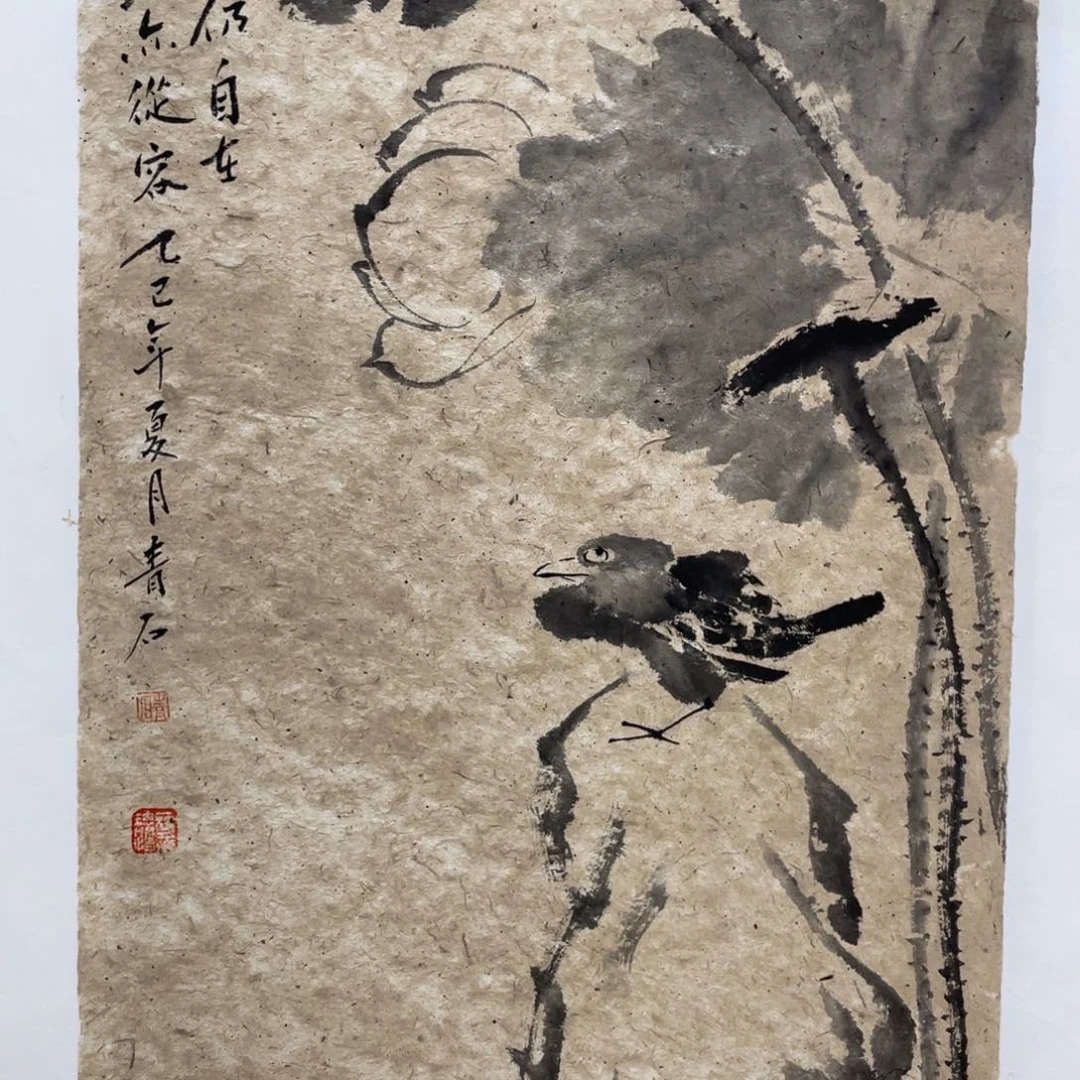 仍自在
亦從容 乙巳年夏月 青石